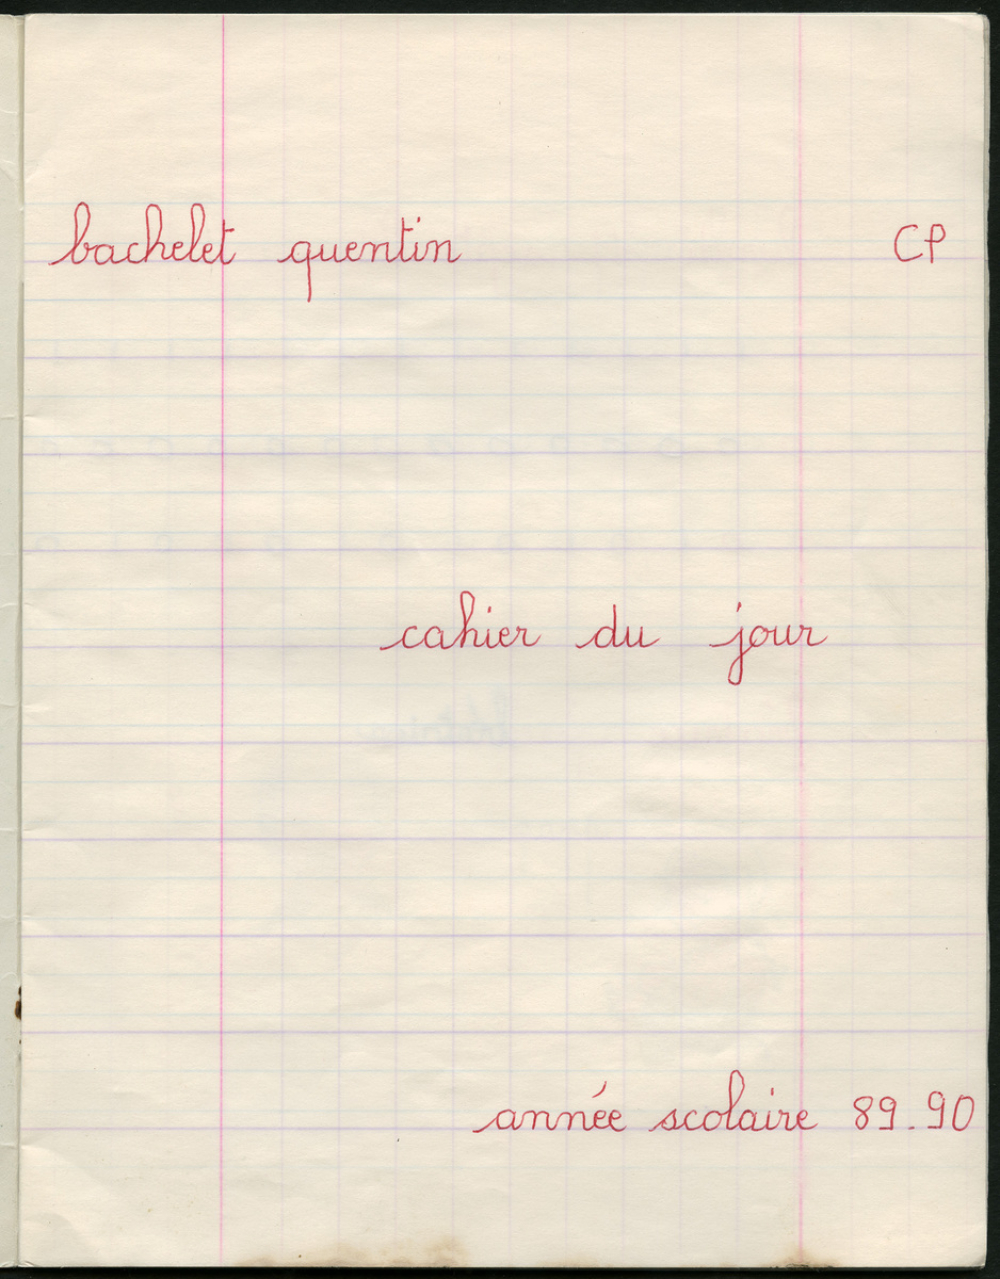 bachelet quentin CP
cahier du jour
année scolaire 89.90